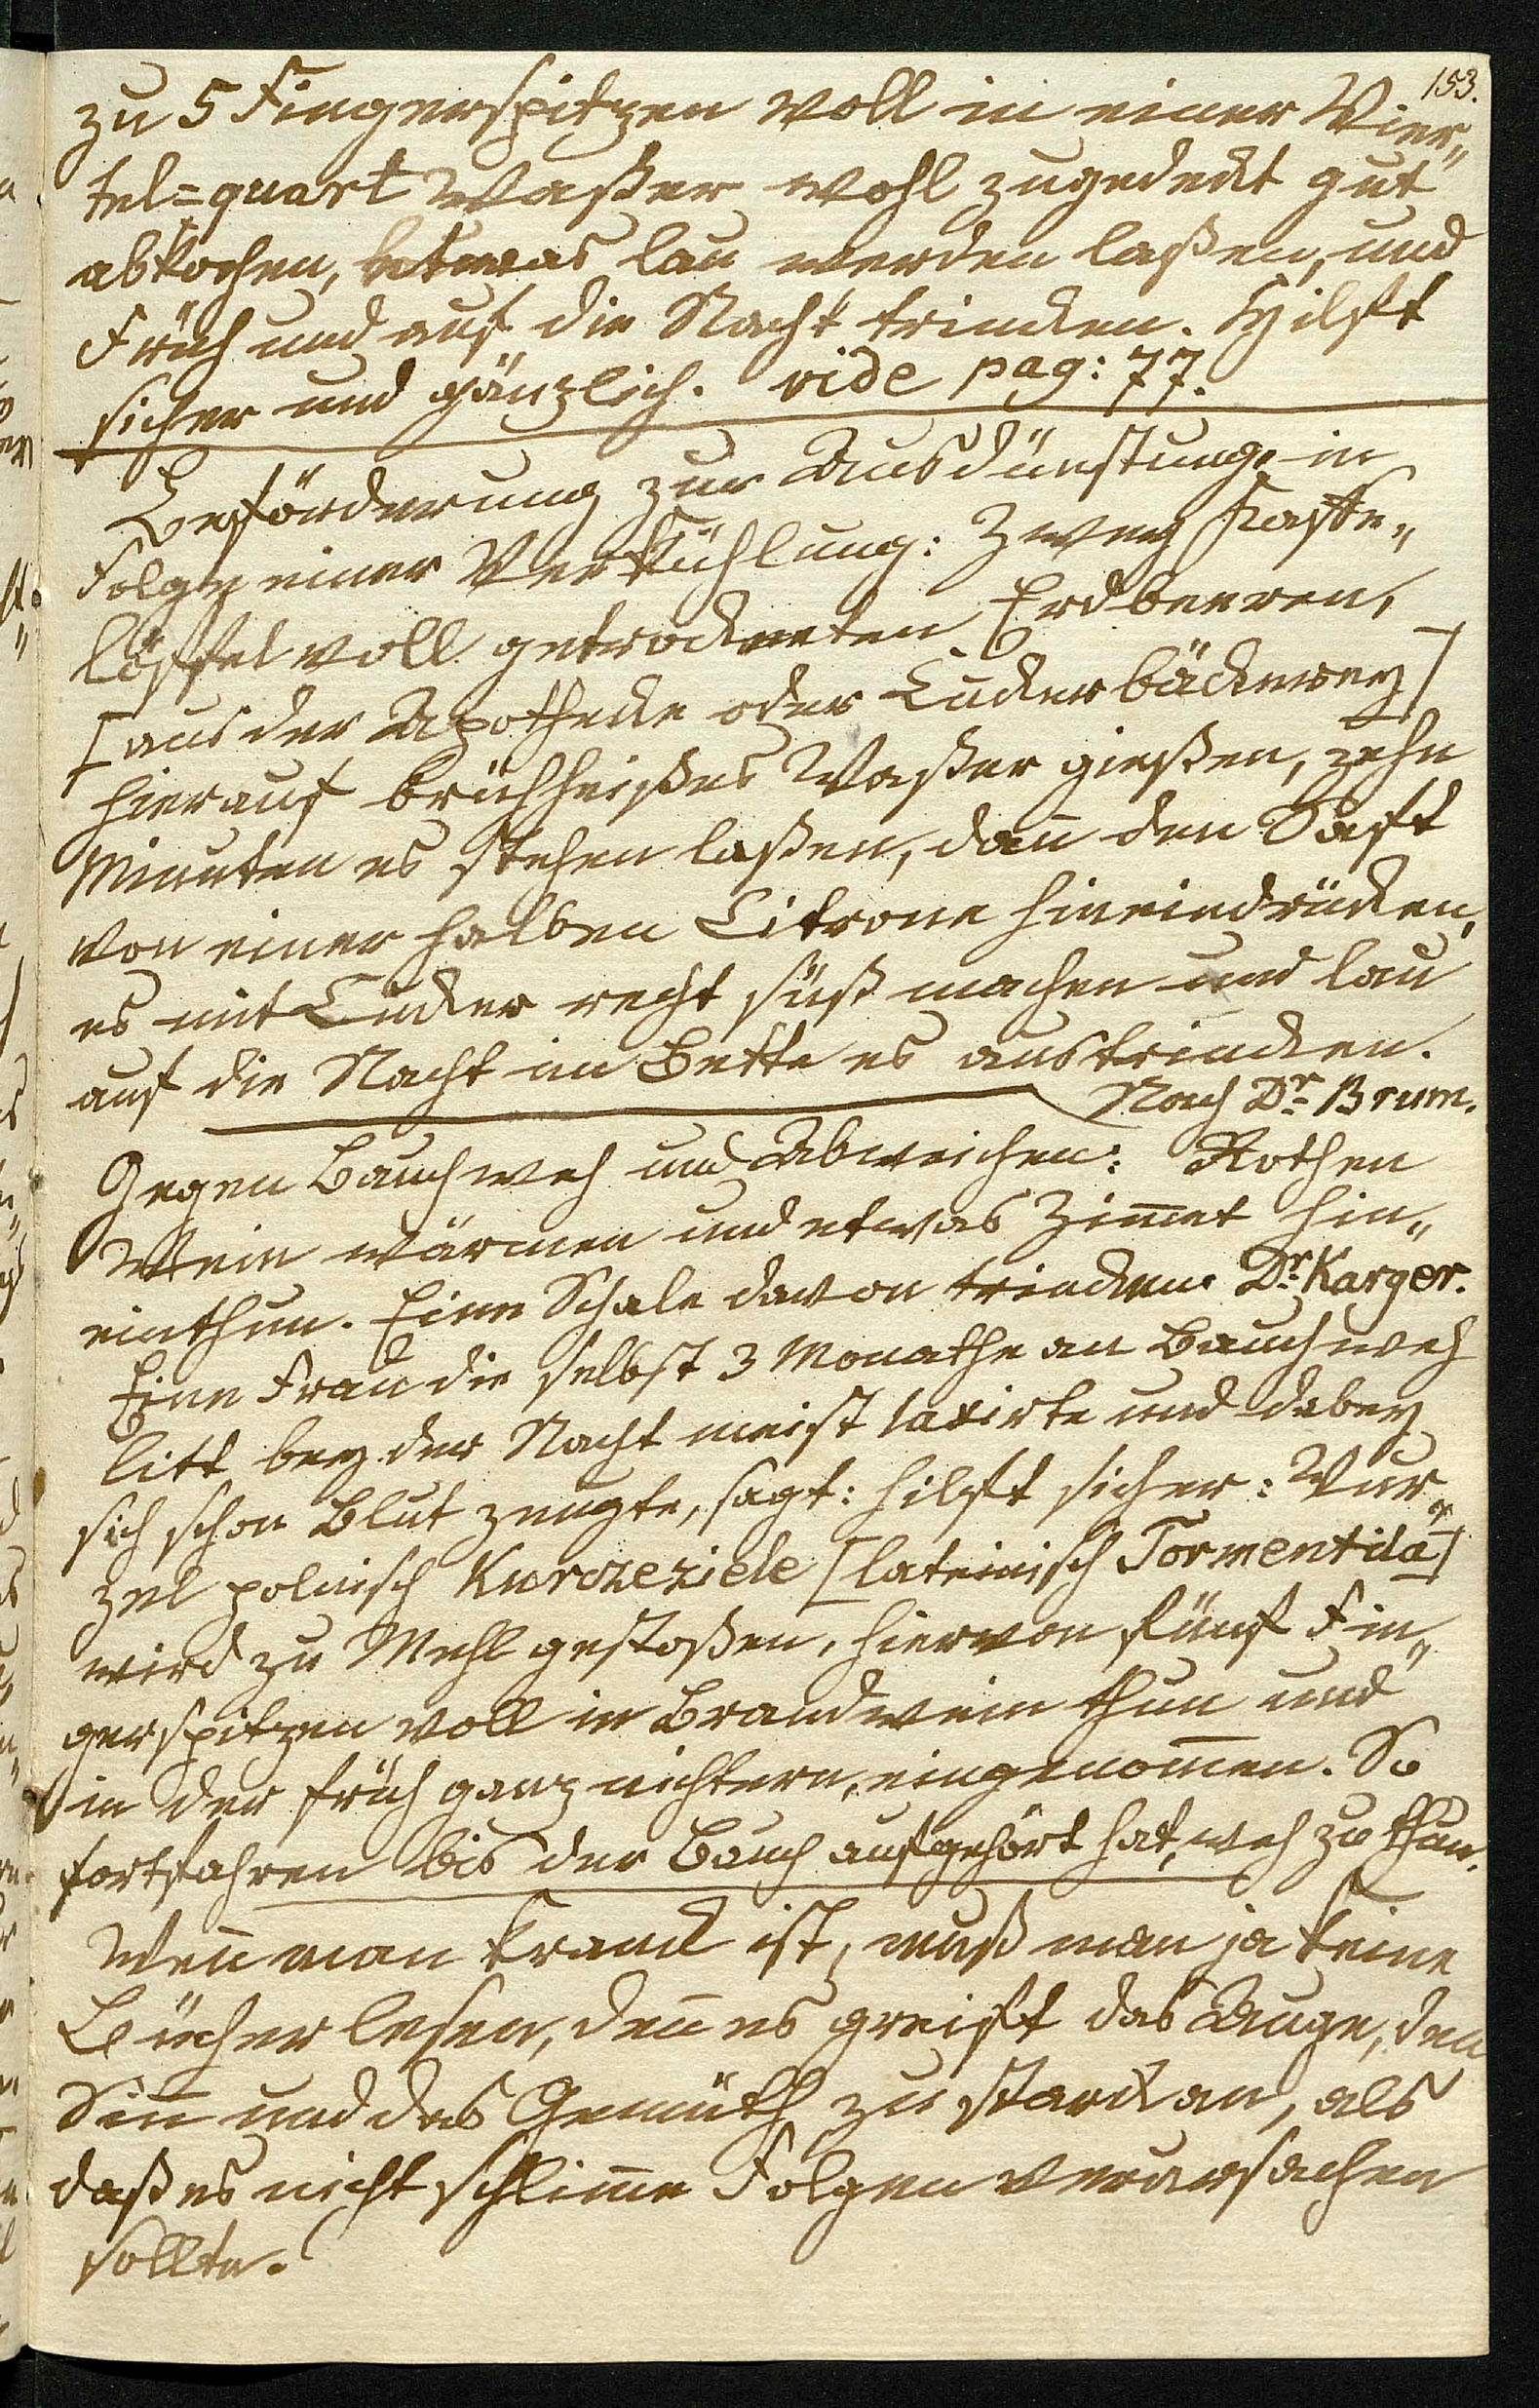 153.
zu 5 Fingerspitzen voll in einer Vier„
tel=quart Waßer wohl zugedekt gut
abkochen, etwas lau werden laßen, und
Früh und auf die Nacht trincken. Hilft
sicher und gänzlich. vide pag: 77.
Beförderung zur Ausdünstung, in
Folge einer Verkühlung: Zwey Kaffe„
löffel voll getrockneten Erdbeeren,
[aus der Apothecke oder Zuckerbäckerey]
hierauf brühheißes Waßer gießen, zehn
Minuten es stehen laßen, dañ den Saft
von einer halben Citrone hineindrücken,
es mit Zucker recht süß machen und lau
auf die Nacht im Bette es austrincken.
Nach Dr. Brum.
Gegen Bauchweh und Abweichen: Rothen
Wein wärmen und etwas Zim̄et hin„
einthun. Eine Schale davon trincken. Dr. Karger.
Eine Frau die selbst 3 Monathe an Bauchweh
litt bey der Nacht meist laxirte und dabey
sich schon Blut zeugte, sagt: hilft sicher: Wur„
zel polnisch Kurczeziele [lateinisch Tormentila]
wird zu Mehl gestoßen, hiervon fünf Fin„
gerspitzen voll in Brandwein thun und
in der früh ganz nichtern, eingenom̄en. So
fortfahren bis der Bauch aufgehört hat, weh zu thun.
Weñ man kranck ist, muß man ja keine
Bücher lesen, deñ es greift das Auge, den
Siñ und das Gemüth zu starck an, als
daß es nicht schlim̄e Folgen verursachen
sollte.